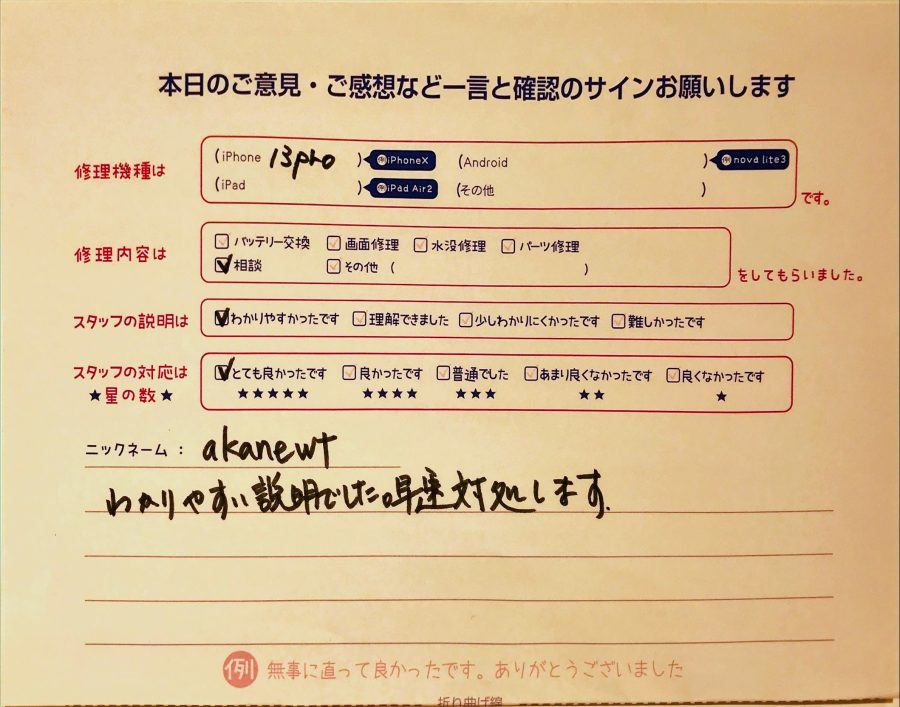 本日のご意見・ご感想など一言と確認のサインお願いします
修理機種は
(iPhone 13pro ) 例iPhoneX (Android ) 例nova lite3
(iPad ) 例iPad Air2 (その他 ) です。
修理内容は
バッテリー交換 画面修理 水没修理 パーツ修理
相談 その他 ( ) をしてもらいました。
スタッフの説明は わかりやすかったです 理解できました 少しわかりにくかったです 難しかったです
スタッフの対応は とても良かったです 良かったです 普通でした あまり良くなかったです 良くなかったです
★星の数★ ★★★★★ ★★★★ ★★★ ★★ ★
ニックネーム： akanewt
わかりやすい説明でした。早速対処します。
例 無事に直って良かったです。ありがとうございました
折り曲げ線